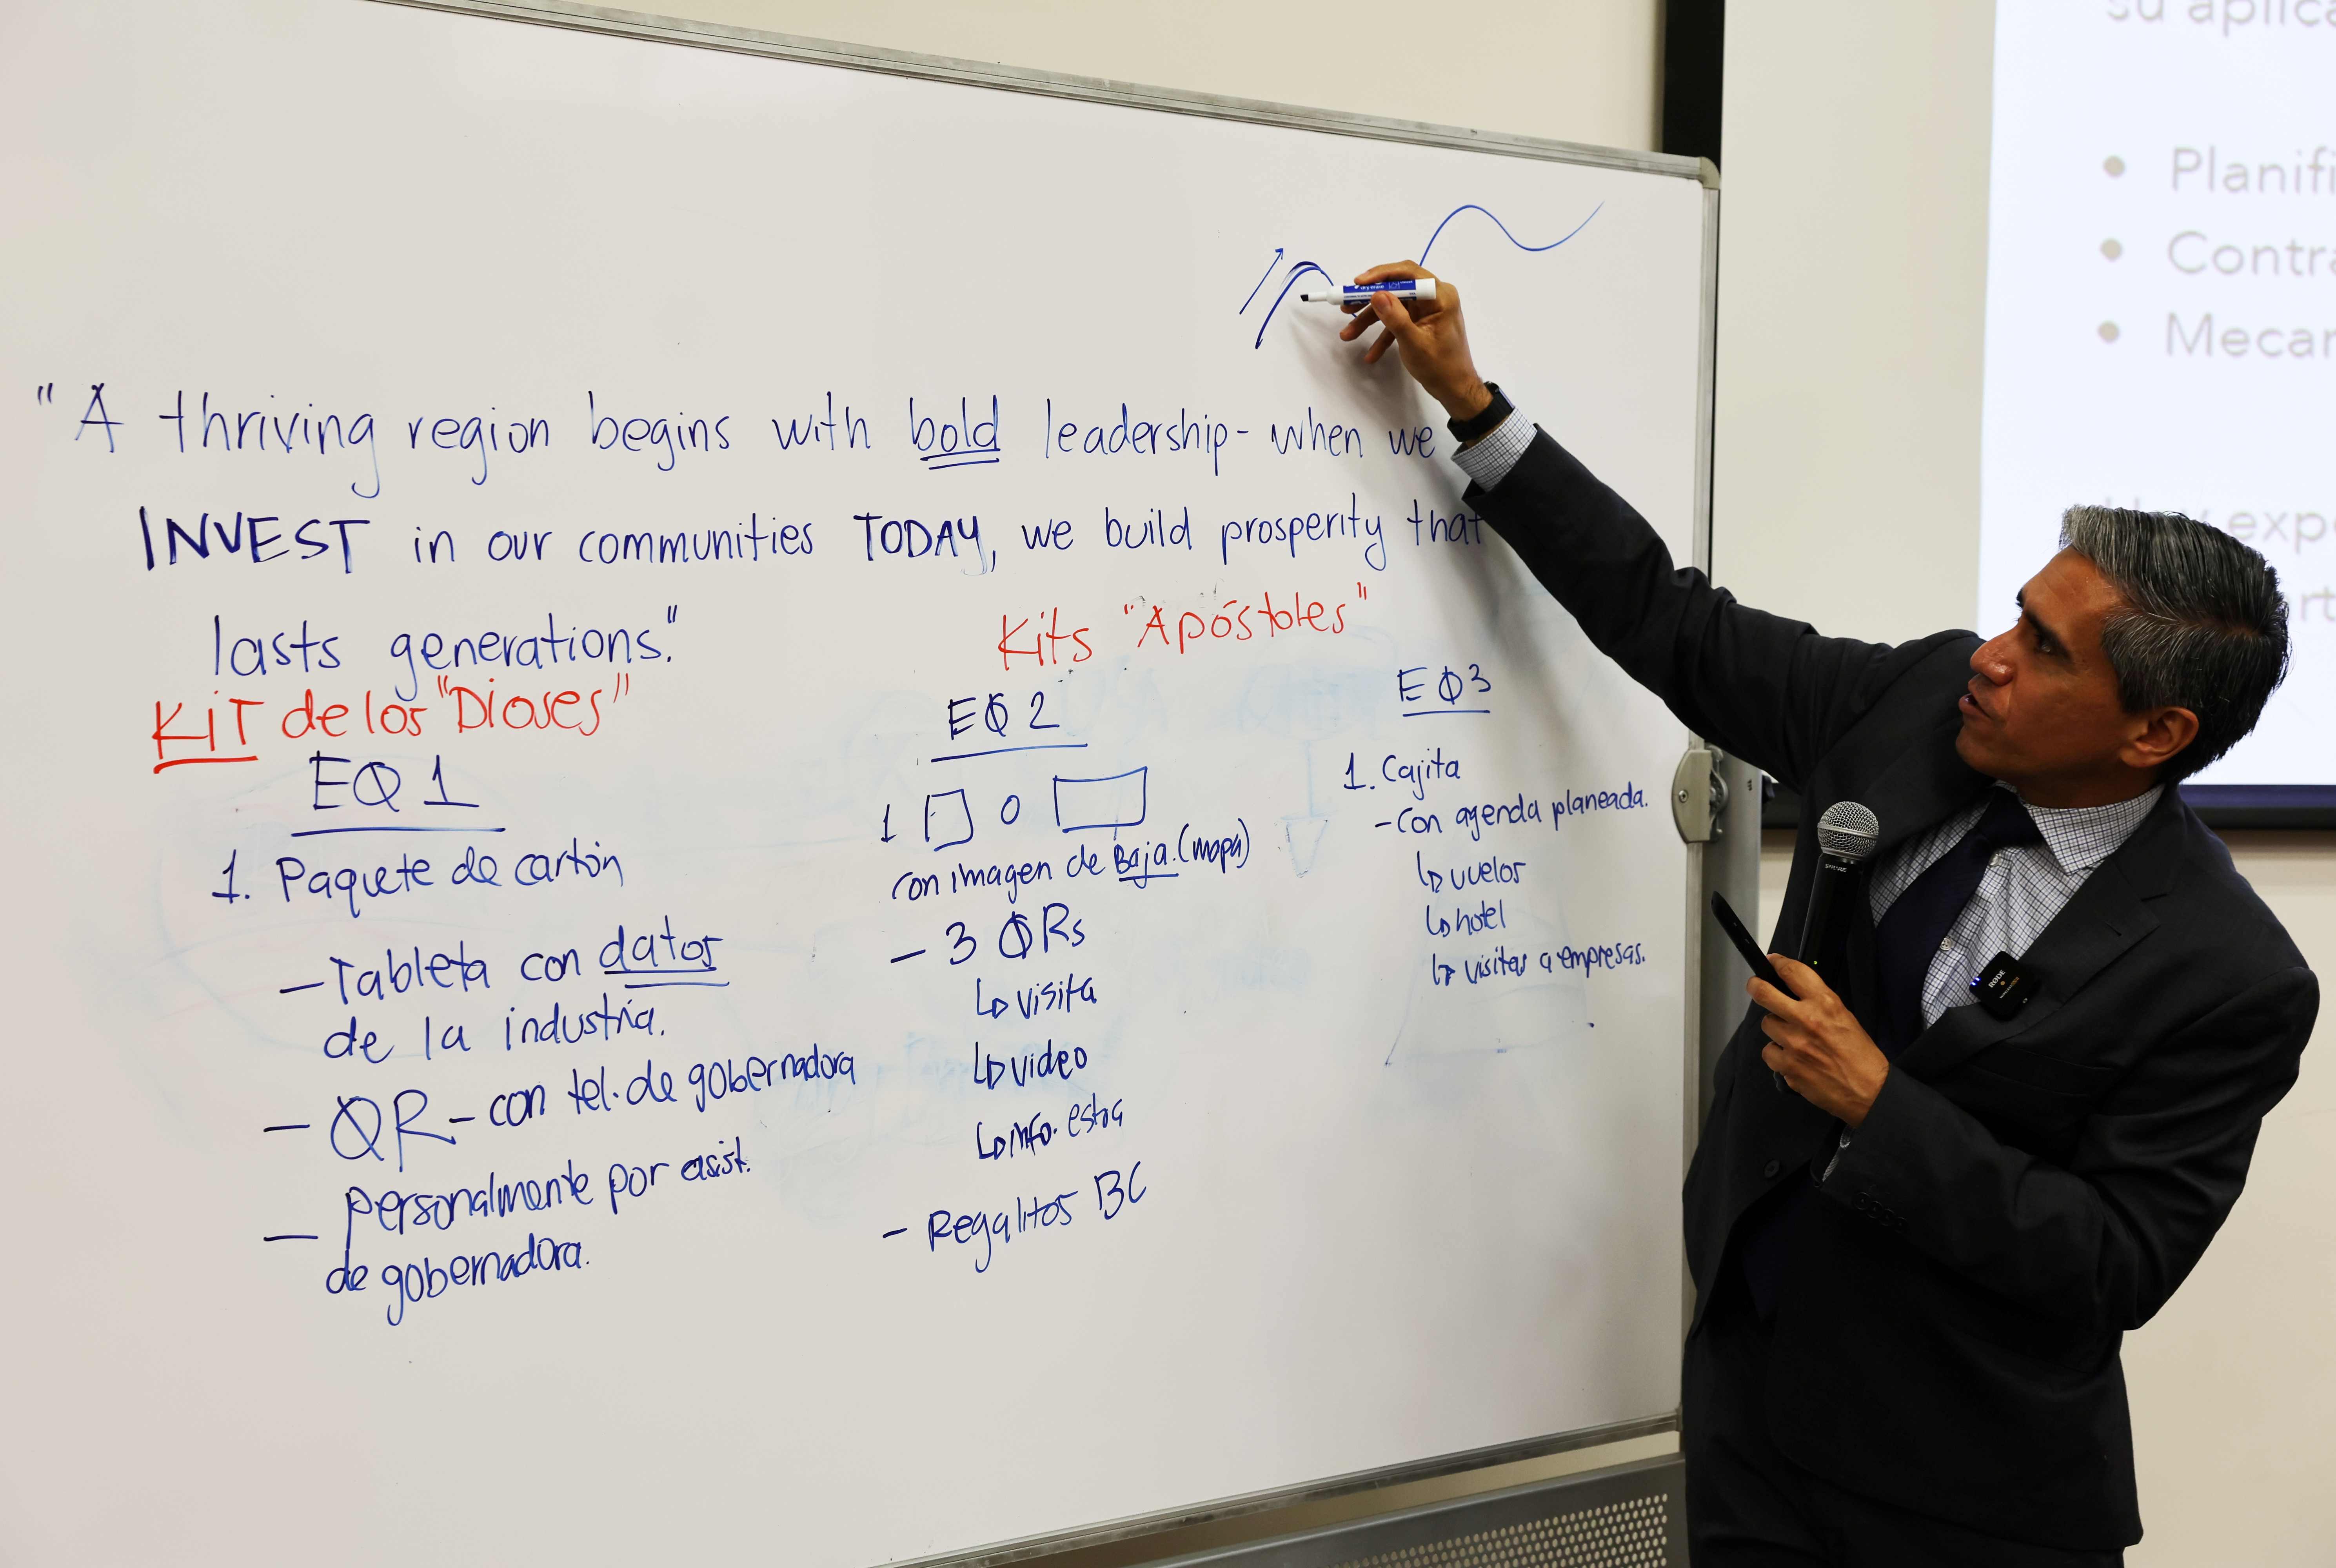 "A thriving region begins with bold leadership- when we
INVEST in our communities TODAY, we build prosperity that
lasts generations."
KIT de los "Dioses"
EQ 1
1. Paquete de cartón
- Tableta con datos
de la industria.
- QR - con tel. de gobernadora
- Personalmente por asist.
de gobernadora.
Kits "Apóstoles"
EQ 2
1 o
con imagen de Baja. (mapa)
- 3 QRs
visita
video
info.
- Regalitos BC
EQ3
1. Cajita
- Con agenda planeada.
vuelos
hotel
visitas a empresas.
su
RODE